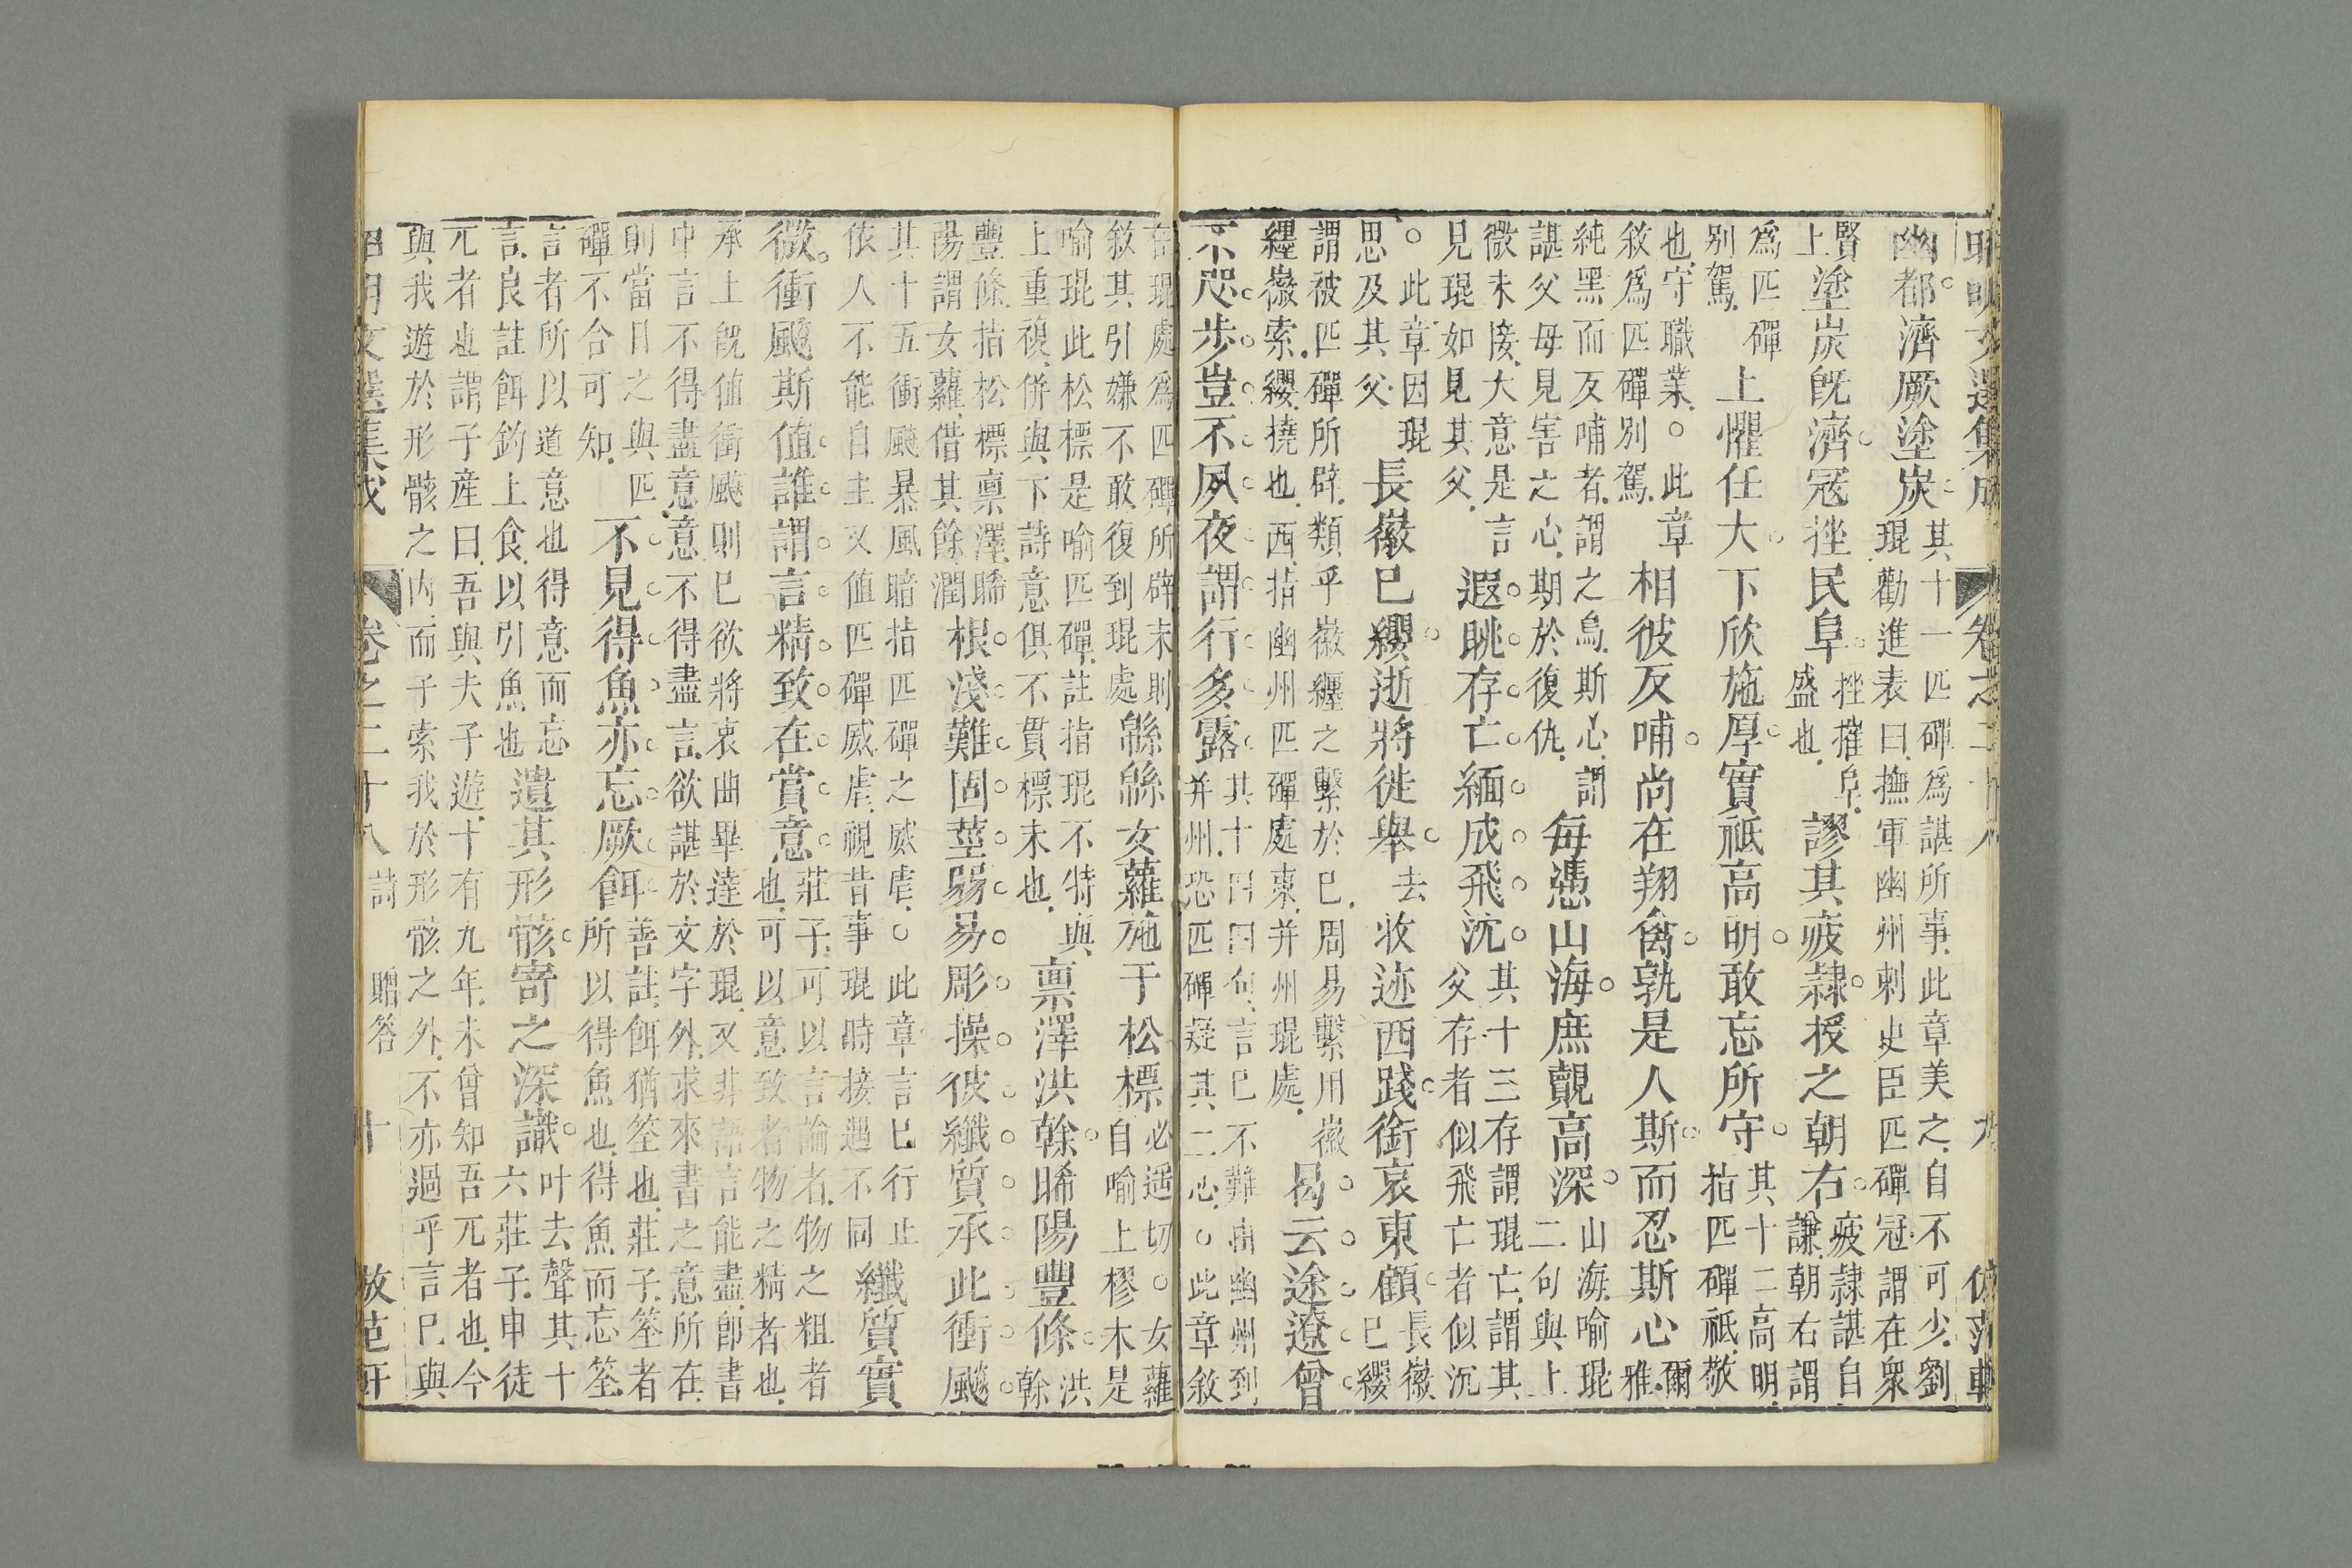 昭明文選集成 卷之二十八 九 倣范軒
幽都濟厥塗炭
其十一匹磾為諶所事此章美之自不可少劉
琨勸進表曰撫軍幽州刺史臣匹磾冠謂在衆
賢
上
塗炭旣濟寇挫民阜
挫摧阜
盛也
謬其疲隷授之朝右
疲隷諶自
謙朝右謂
為匹磾
別駕
上懼任大下欣施厚實祗高明敢忘所守
其十二高明
指匹磾祗敬
也守職業。此章
敘為匹磾別駕
相彼反哺尚在翔禽孰是人斯而忍斯心
爾
雅
純黑而反哺者謂之烏斯心謂
諶父母見害之心期於復仇
每憑山海庶覿高深
山海喻琨
二句與上
微未接大意是言
見琨如見其父
遐眺存亡緬成飛沈
其十三存謂琨亡謂其
父存者似飛亡者似沉
。此章因琨
思及其父
長徽已纓逝將徙舉
去
收迹西踐銜哀東顧
長徽
已纓
謂被匹磾所辟類乎徽纆之繫於已周易繫用徽
纆徽索纓撓也西指幽州匹磾處東并州琨處
曷云途遼曾
不咫步豈不夙夜謂行多露
其十四四句言已不難由幽州到
并州恐匹磾疑其二心。此章敘
在琨處為匹磾所辟末則
敘其引嫌不敢復到琨處
緜緜女蘿施于松標
必遥切。女蘿
自喻上樛木是
喻琨此松標是喻匹磾註指琨不特與
上重複併與下詩意俱不貫標末也
禀澤洪榦晞陽豐條
洪
榦
豐條指松標禀澤晞
陽謂女蘿借其餘潤
根淺難固莖弱易彫操彼纖質承此衝飈
其十五衝飈暴風暗指匹磾之威虐。此章言已行止
依人不能自主又值匹磾威虐視昔事琨時接遇不同
纖質實
微衝飈斯值誰謂言精致在賞意
莊子可以言論者物之粗者
也可以意致者物之精者也
承上旣值衝飈則已欲將衷曲畢達於琨又非語言能盡卽書
中言不得盡意意不得盡言欲諶於文字外求來書之意所在
則當日之與匹
磾不合可知
不見得魚亦忘厥餌
善註餌猶筌也莊子筌者
所以得魚也得魚而忘筌
言者所以道意也得意而忘
言良註餌釣上食以引魚也
遺其形骸寄之深識
叶去聲其十
六莊子申徒
兀者也謂子産曰吾與夫子遊十有九年未曾知吾兀者也今
與我遊於形骸之内而子索我於形骸之外不亦過乎言已與
昭明文選集成 卷之二十八 詩 贈答 十 倣范軒